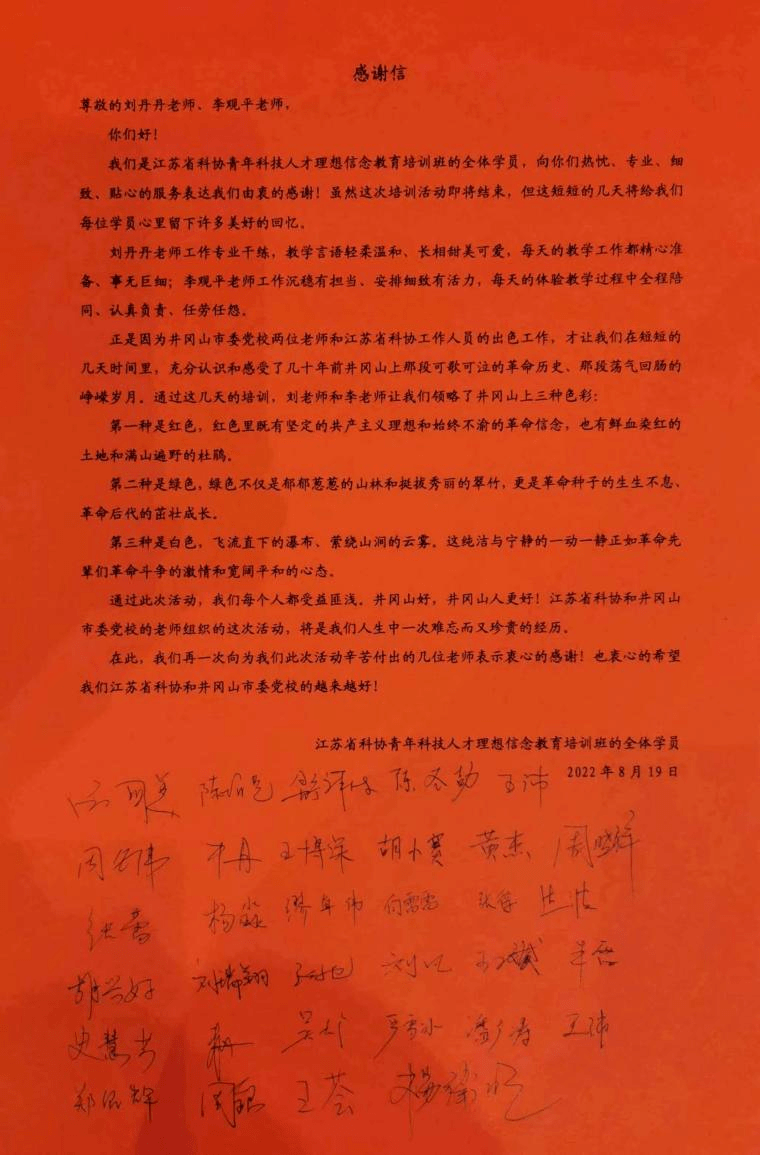 感谢信
尊敬的刘丹丹老师、李观平老师,
你们好!
我们是江苏省科协青年科技人才理想信念教育培训班的全体学员，向你们热忱、专业、细
致、贴心的服务表达我们由衷的感谢！虽然这次培训活动即将结束，但这短短的几天将给我们
每位学员心里留下许多美好的回忆。
刘丹丹老师工作专业干练，教学言语轻柔温和、长相甜美可爱，每天的教学工作都精心准
备、事无巨细；李观平老师工作沉稳有担当、安排细致有活力，每天的体验教学过程中全程陪
同、认真负责、任劳任怨。
正是因为井冈山市委党校两位老师和江苏省科协工作人员的出色工作，才让我们在短短的
几天时间里，充分认识和感受了几十年前井冈山上那段可歌可泣的革命历史、那段荡气回肠的
峥嵘岁月。通过这几天的培训，刘老师和李老师让我们领略了井冈山上三种色彩：
第一种是红色，红色里既有坚定的共产主义理想和始终不渝的革命信念，也有鲜血染红的
土地和满山遍野的杜鹃。
第二种是绿色，绿色不仅是郁郁葱葱的山林和挺拔秀丽的翠竹，更是革命种子的生生不息、
革命后代的茁壮成长。
第三种是白色，飞流直下的瀑布、萦绕山涧的云雾。这纯洁与宁静的一动一静正如革命先
辈们革命斗争的激情和宽阔平和的心态。
通过此次活动，我们每个人都受益匪浅。井冈山好，井冈山人更好！江苏省科协和井冈山
市委党校的老师组织的这次活动，将是我们人生中一次难忘而又珍贵的经历。
在此，我们再一次向为我们此次活动辛苦付出的几位老师表示衷心的感谢！也衷心的希望
我们江苏省科协和井冈山市委党校的越来越好！
江苏省科协青年科技人才理想信念教育培训班的全体学员
2022年8月19日
王沛
王博深 胡小赛 黄杰 周晓祥
张蕾 杨淼
胡兴好 刘瑞翔
王沛
王荟